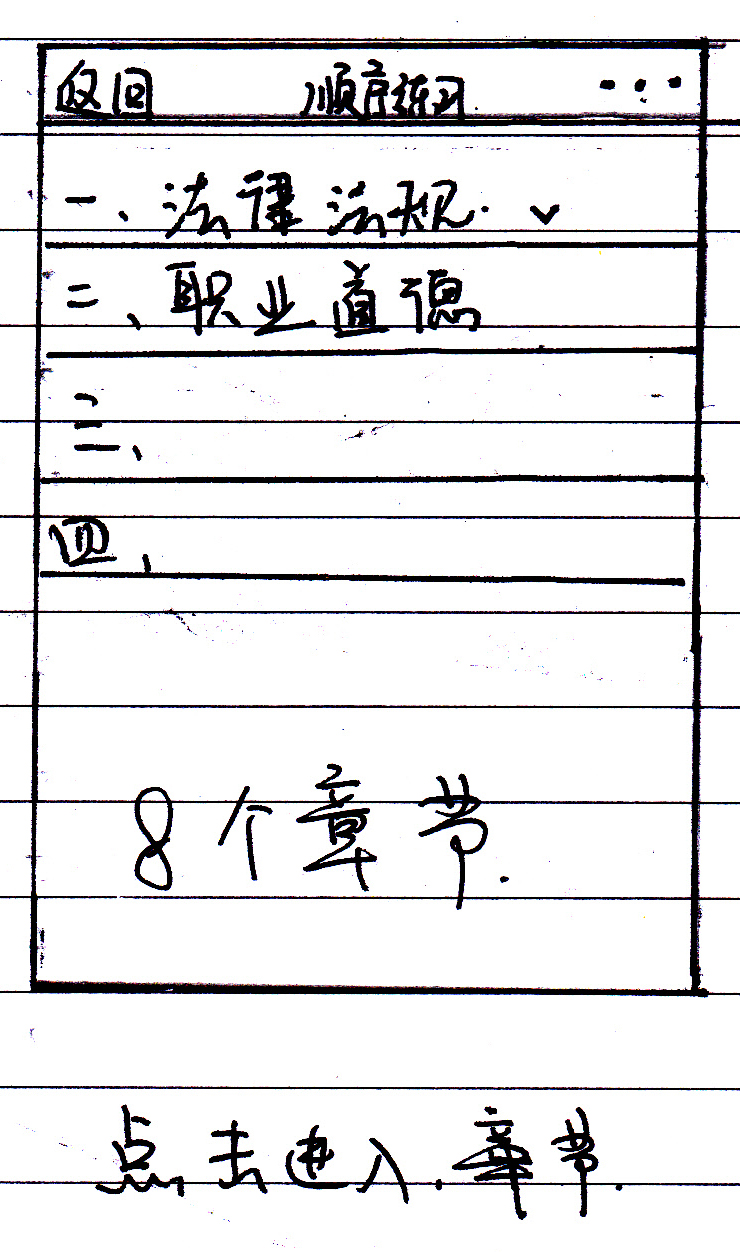 返回 顺序练习 ...
一、法律法规.
二、职业道德
三、
四、
8个章节.
点击进入.章节.